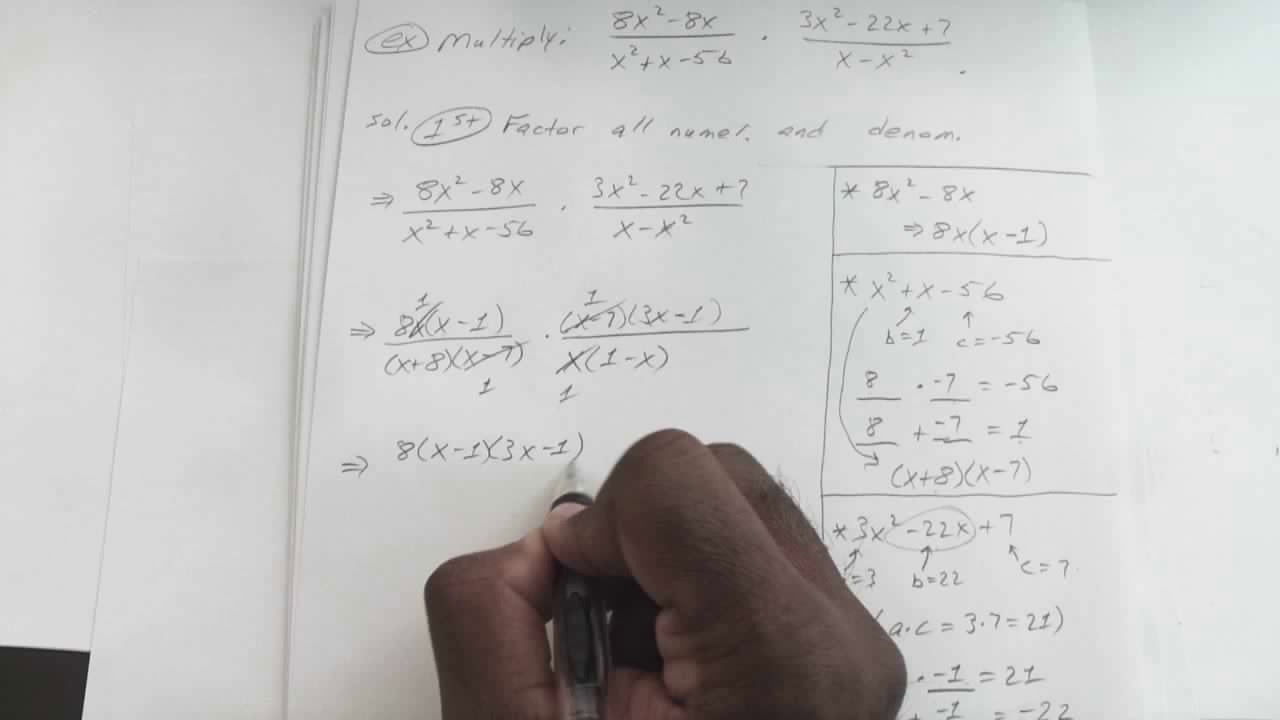 ex Multiply: (8x² - 8x)/(x² + x - 56) · (3x² - 22x + 7)/(x - x²).
Sol. 1st Factor all numer. and denom.
⇒ (8x² - 8x)/(x² + x - 56) · (3x² - 22x + 7)/(x - x²)
1 1
⇒ 8x(x - 1)/(x+8)(x-7) · (x-7)(3x-1)/x(1-x)
1 1
⇒ 8(x-1)(3x-1)
* 8x² - 8x
⇒ 8x(x-1)
* x² + x - 56
b=1 c=-56
8 · -7 = -56
8 + -7 = 1
(x+8)(x-7)
* 3x² - 22x + 7
=3 b=22 c=7
a·c = 3·7 = 21)
· -1 = 21
+ -1 = -22